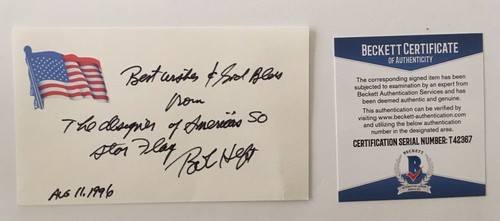 Best wishes & God Bless
from
The designer of America's 50
star Flag
Bob Heft
Aug 11, 1996
BECKETT CERTIFICATE
OF AUTHENTICITY
The corresponding signed item has been
subjected to examination by an expert from
Beckett Authentication Services and has
been deemed authentic and genuine.
This authentication can be verified by
visiting www.beckett-authentication.com
and utilizing the below authentication
number in the designated area.
CERTIFICATION SERIAL NUMBER: T42367
BECKETT
B